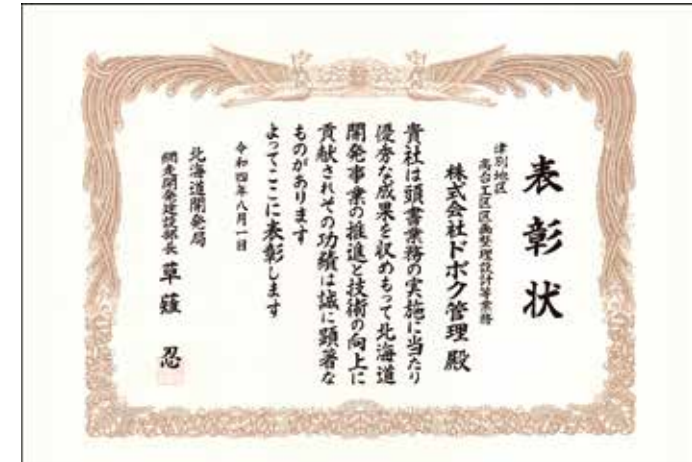 表彰状
津別地区
高台工区区画整理設計等業務
株式会社ドボク管理 殿
貴社は頭書業務の実施に当たり
優秀な成果を収めもって北海道
開発事業の推進と技術の向上に
貢献されその功績は誠に顕著な
ものがあります
よってここに表彰します
令和四年八月一日
北海道開発局
網走開発建設部長 草薙 忍